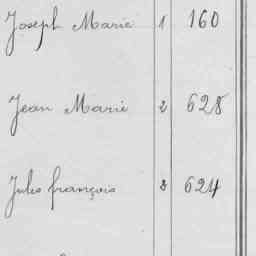 Joseph Marie 1 160
Jean Marie 2 628
Jules françois 3 624